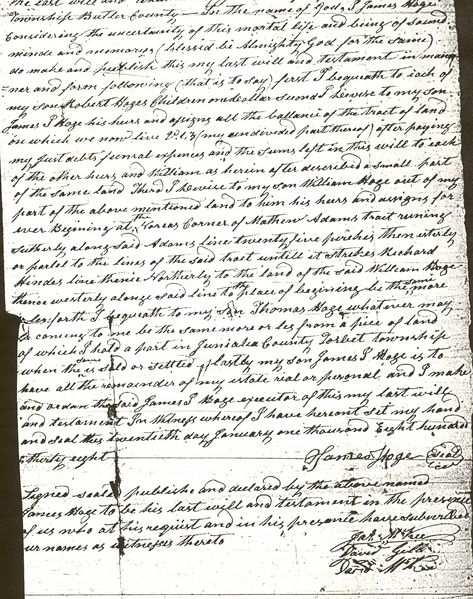 the last will and
Township Butler County — In the name of God, I James Hoge
Considering the uncertainty of this mortal life and being of sound
minde and memory, (blessid be Almighty God for the same)
do make and publish this my last will and testament in man
ner and form following (that is to say) first I bequeath to each of
my son Robert Hoges Children one dollar second I devise to my son
James I Hoge his heurs and assigns all the ballance of the tract of land
on which we now live (my undivided part thereof) after payeng
my Just debts, funral expences and the sums left in this will to each
of the other heurs and William as herein after described a small part
of the same land Third I devise to my son William Hoge out of my
part of the above mentioned land to him his heurs and assigns for
ever Begining at the Corner of Mathew Adams tract runing
sutherly along said Adams line twenty five perches then esterly
or parlel to the lines of the said tract untill it strekes Richard
Hindes line thence Northerly to the land of the said William Hoge
thence westerly alonge said line to the place of begining be the same more
or les forth I bequeath to my son Thomas Hoge whatever may
be coming to me be the same more or les from a piec of land
of which I hold a part in Juniatta County township
when the same is sold or settled lastly my son James I Hoge is to
have all the remainder of my estate rial or personal and I make
and ordan the said James I Hoge executor of this my last will
and testament In witness whereof I have hereunt set my hand
and seal this twentieth day January one thousand Eight hundred
& thirty eight
James Hoge Seal
Signed seald publishe and declared by the above named
James Hoge to be his last will and testament in the presence
of us who at his request and in his presence have subscribed
our names as witnesses thereto
David
David